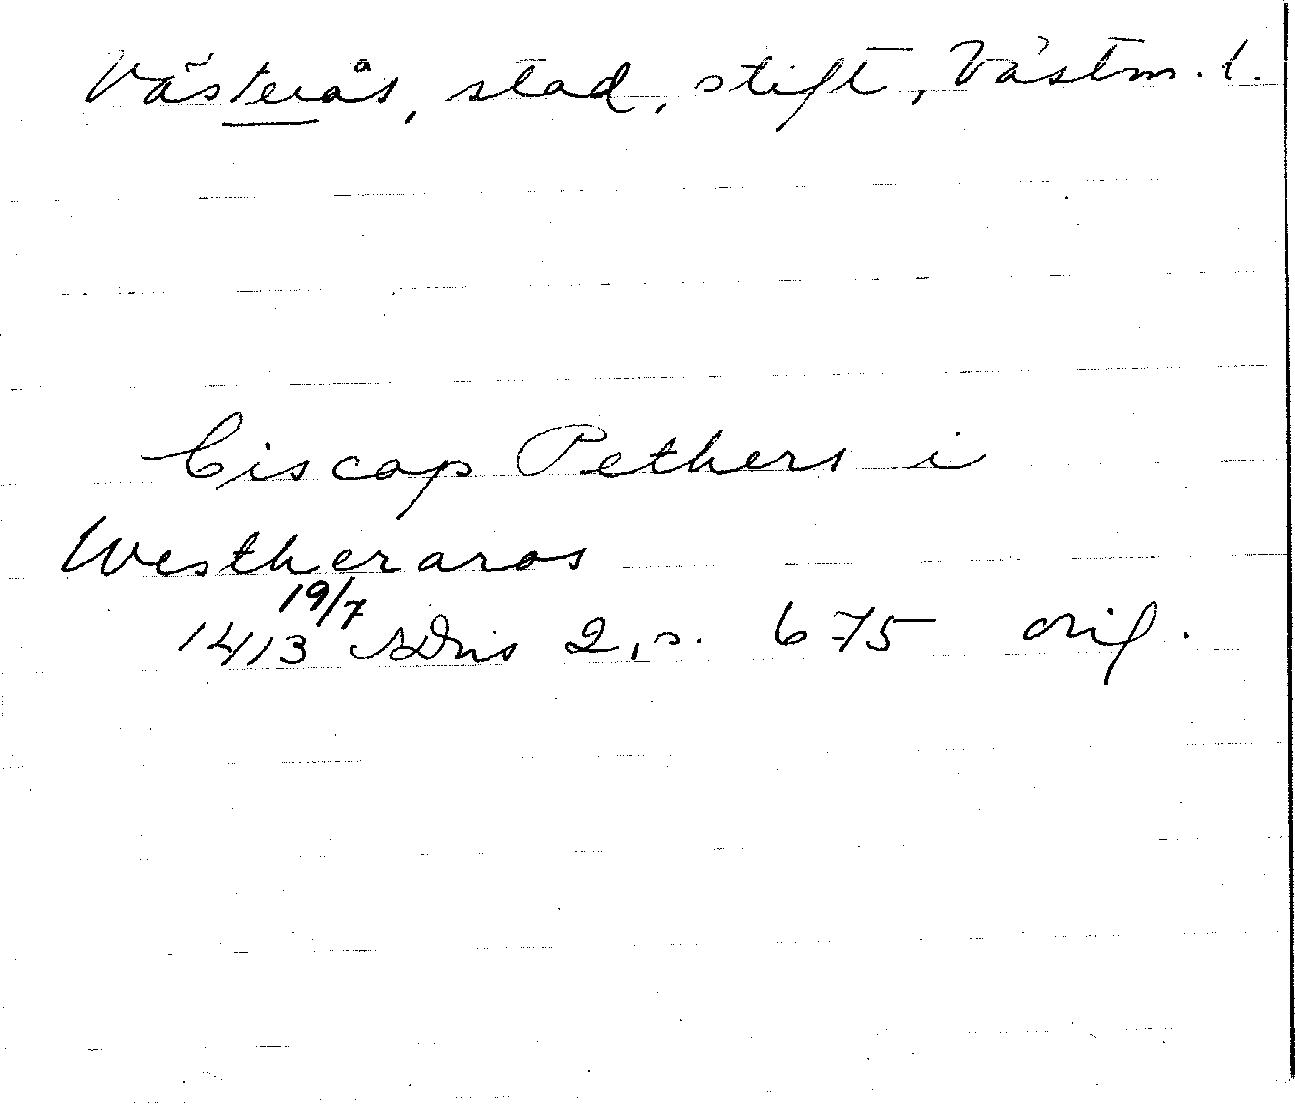 Västerås, stad, stift, Västm. l.
biscop Pethers i
Westheraros
19/7
1413 SDns 2, s. 675 orig.